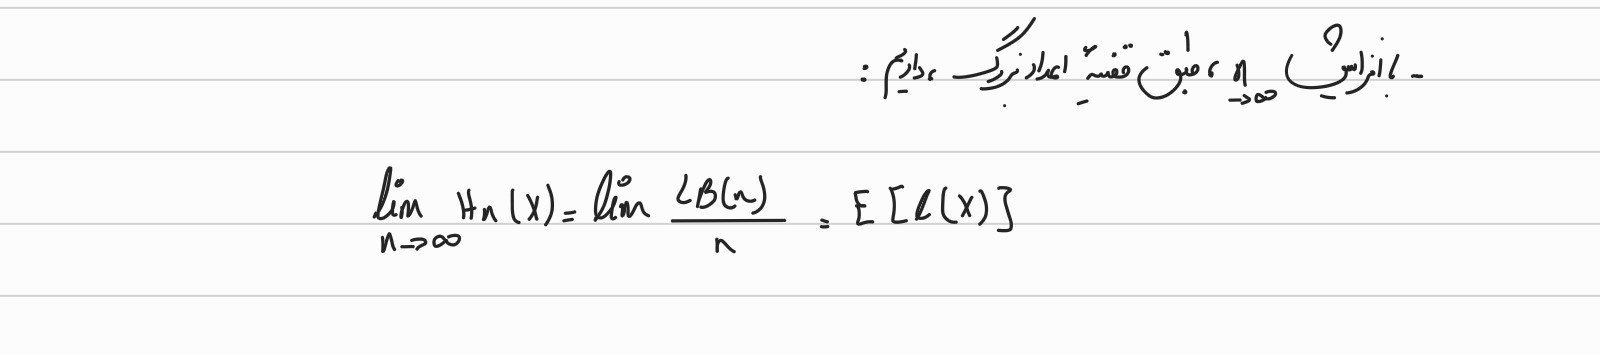 - با افزایش n→∞ ، طبق قضیهٔ اعداد بزرگ ، داریم :
lim n→∞ Hn(X) = lim LB(n)/n = E[l(X)]